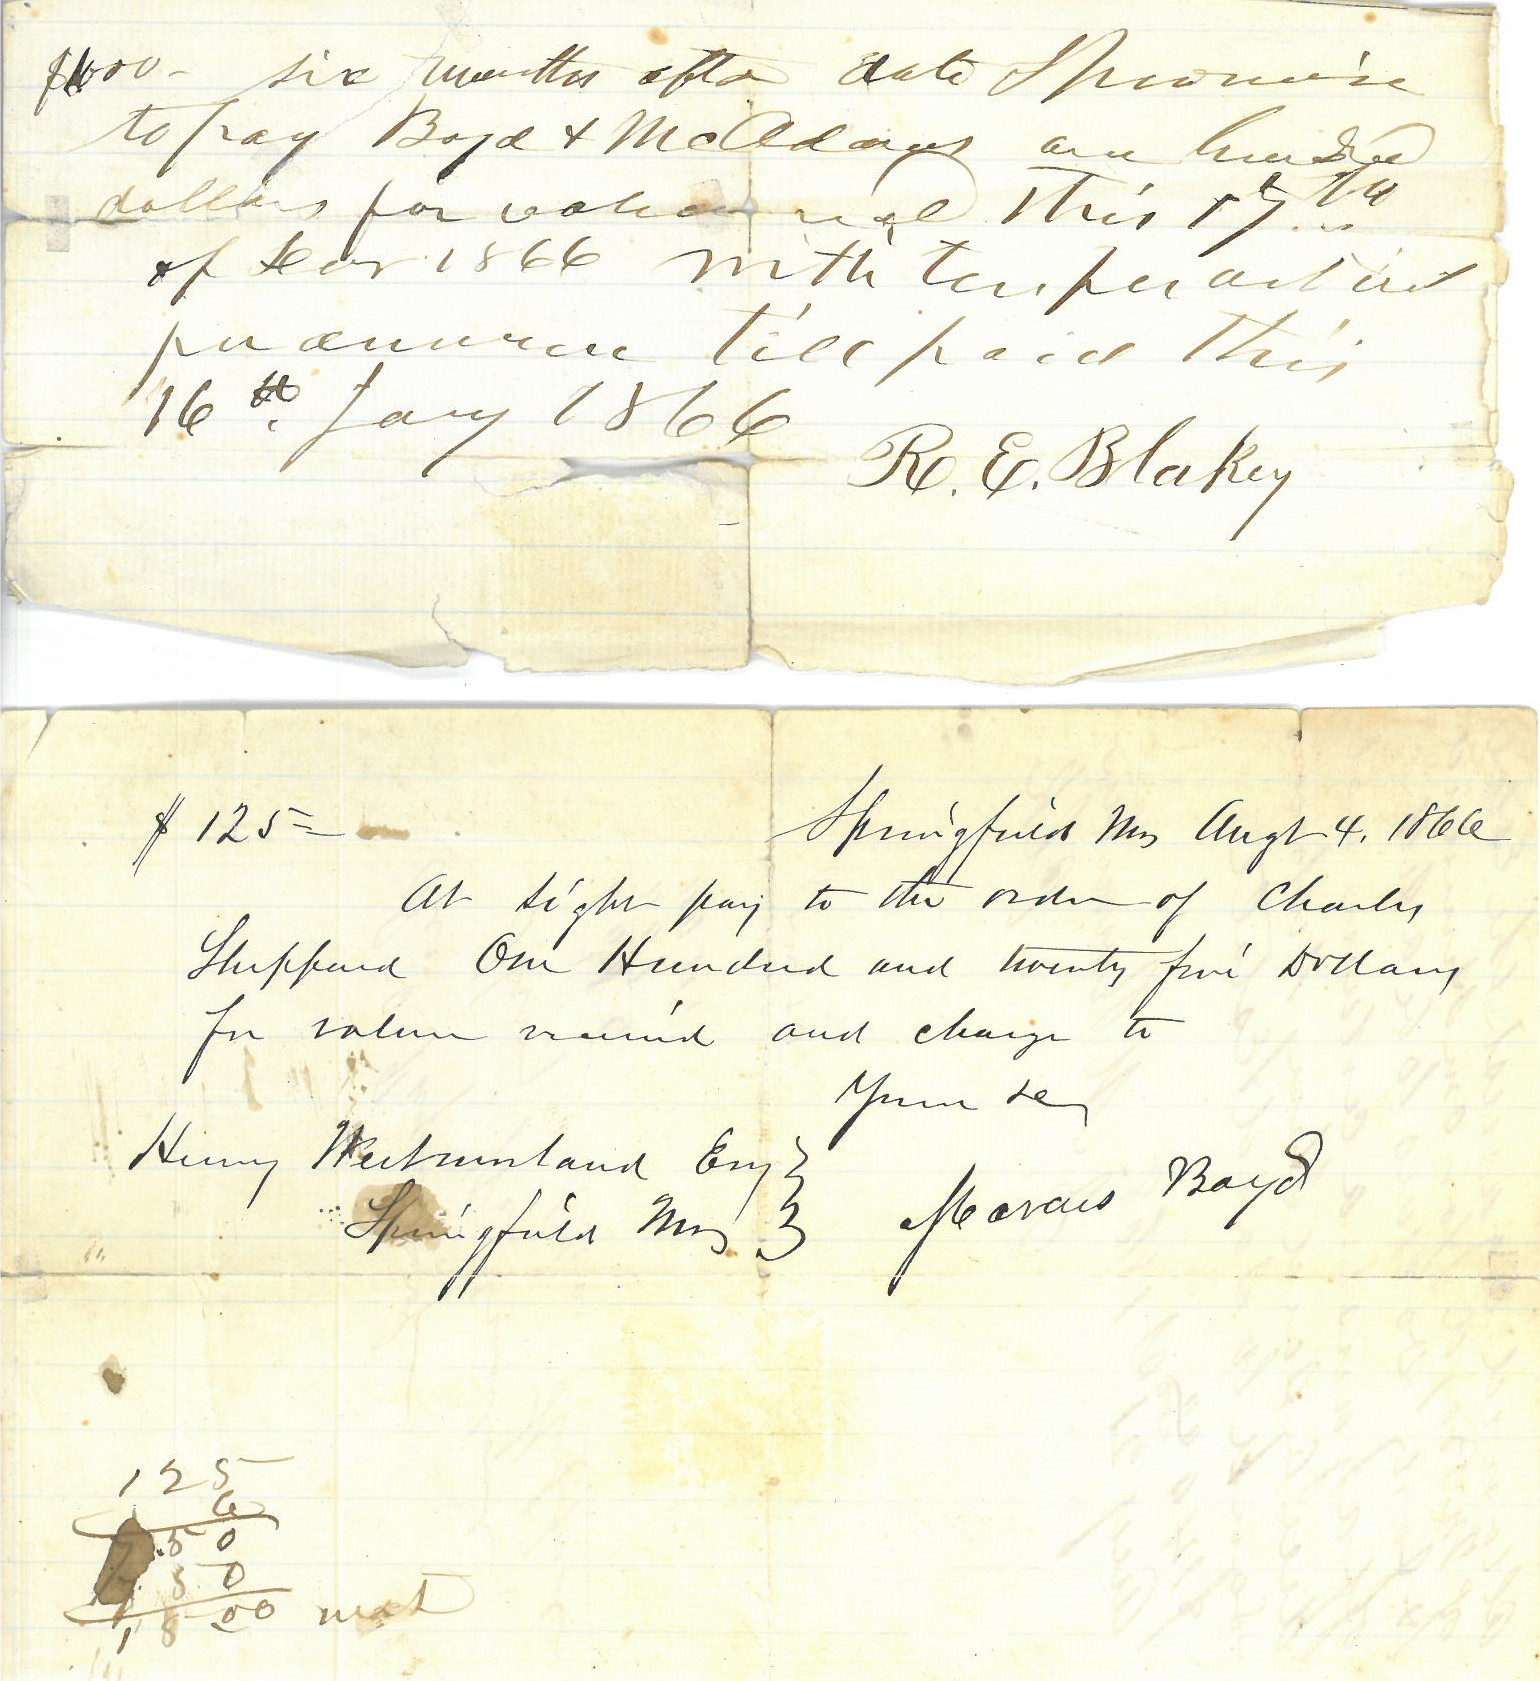 $100- six months after date I promise
to pay Boyd & McAdams one hundred
dollars for value recd This 17th
of 1866 with ten per cent int
per annum till paid this
16th Jany 1866
R. E. Blakey
$125= Springfield Mo Augt 4. 1866
At sight pay to the order of Charles
Sheppard One Hundred and twenty five Dollars
for value received and charge to
Your se
Henry Westmorland Esq
Springfield Mo Marcus Boyd
125
6
7.50
7.50
15 00